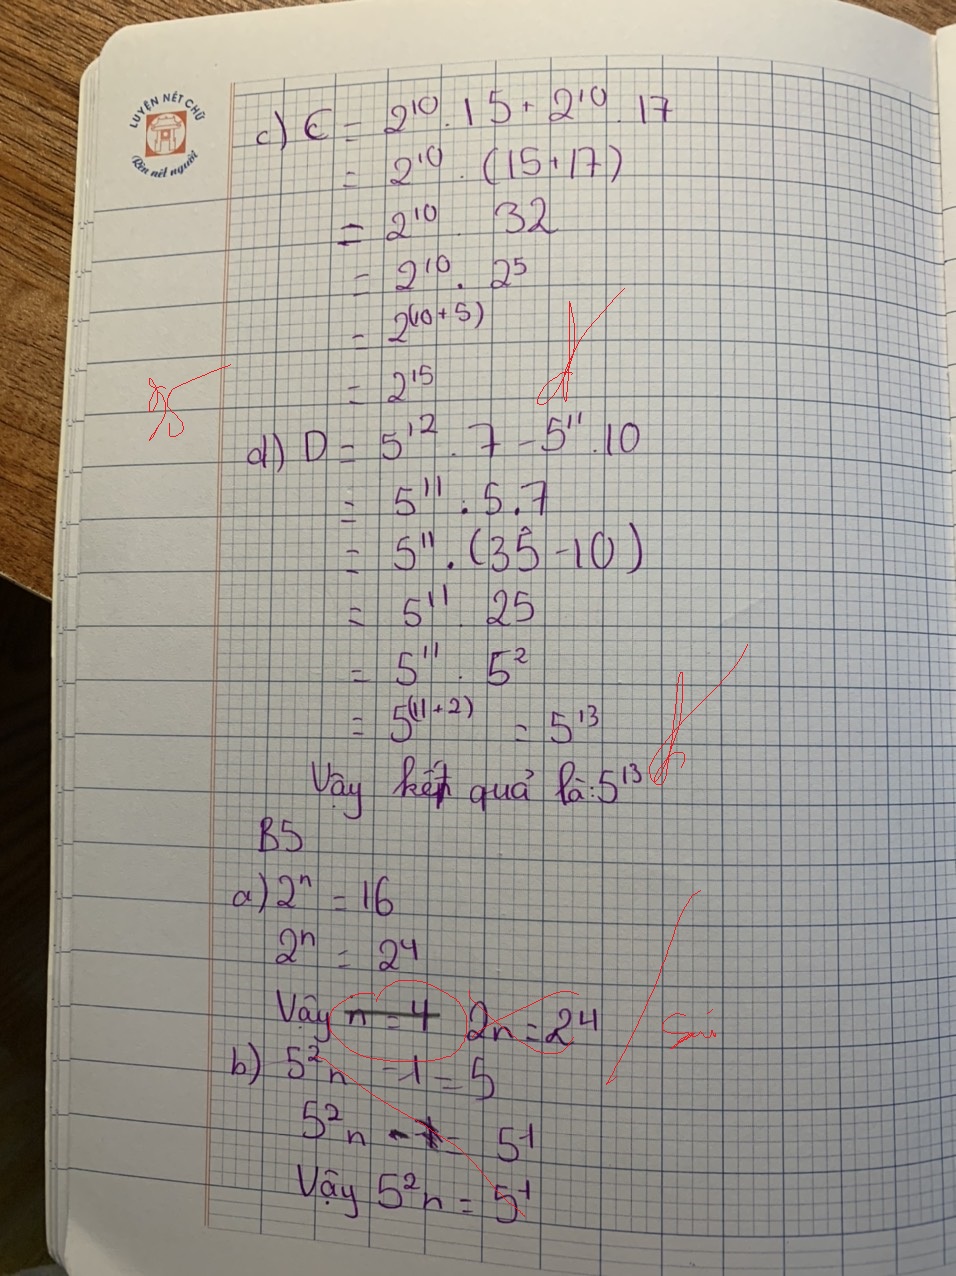 LUYỆN NÉT CHỮ
Rèn nết người
c) C = 2¹⁰ . 15 + 2¹⁰ . 17
= 2¹⁰ . (15+17)
= 2¹⁰ . 32
= 2¹⁰ . 2⁵
= 2⁽¹⁰⁺⁵⁾
= 2¹⁵
d) D = 5¹² . 7 - 5¹¹ . 10
= 5¹¹ . 5 . 7
= 5¹¹ . (35 - 10)
= 5¹¹ . 25
= 5¹¹ . 5²
= 5⁽¹¹⁺²⁾ = 5¹³
Vậy kết quả là: 5¹³
B5
a) 2ⁿ = 16
2ⁿ = 2⁴
Vậy n = 4 2n = 2⁴ Sai
b) 5²n - 1 = 5
5²n = 5¹
Vậy 5²n = 5¹